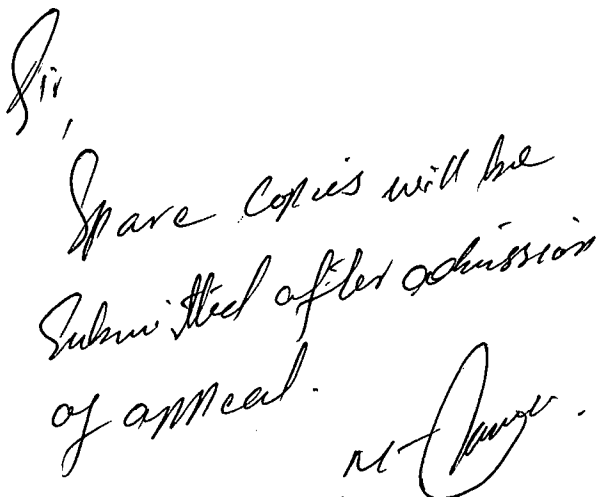 Sir,
Spare copies will be
Submitted after admission
of appeal.